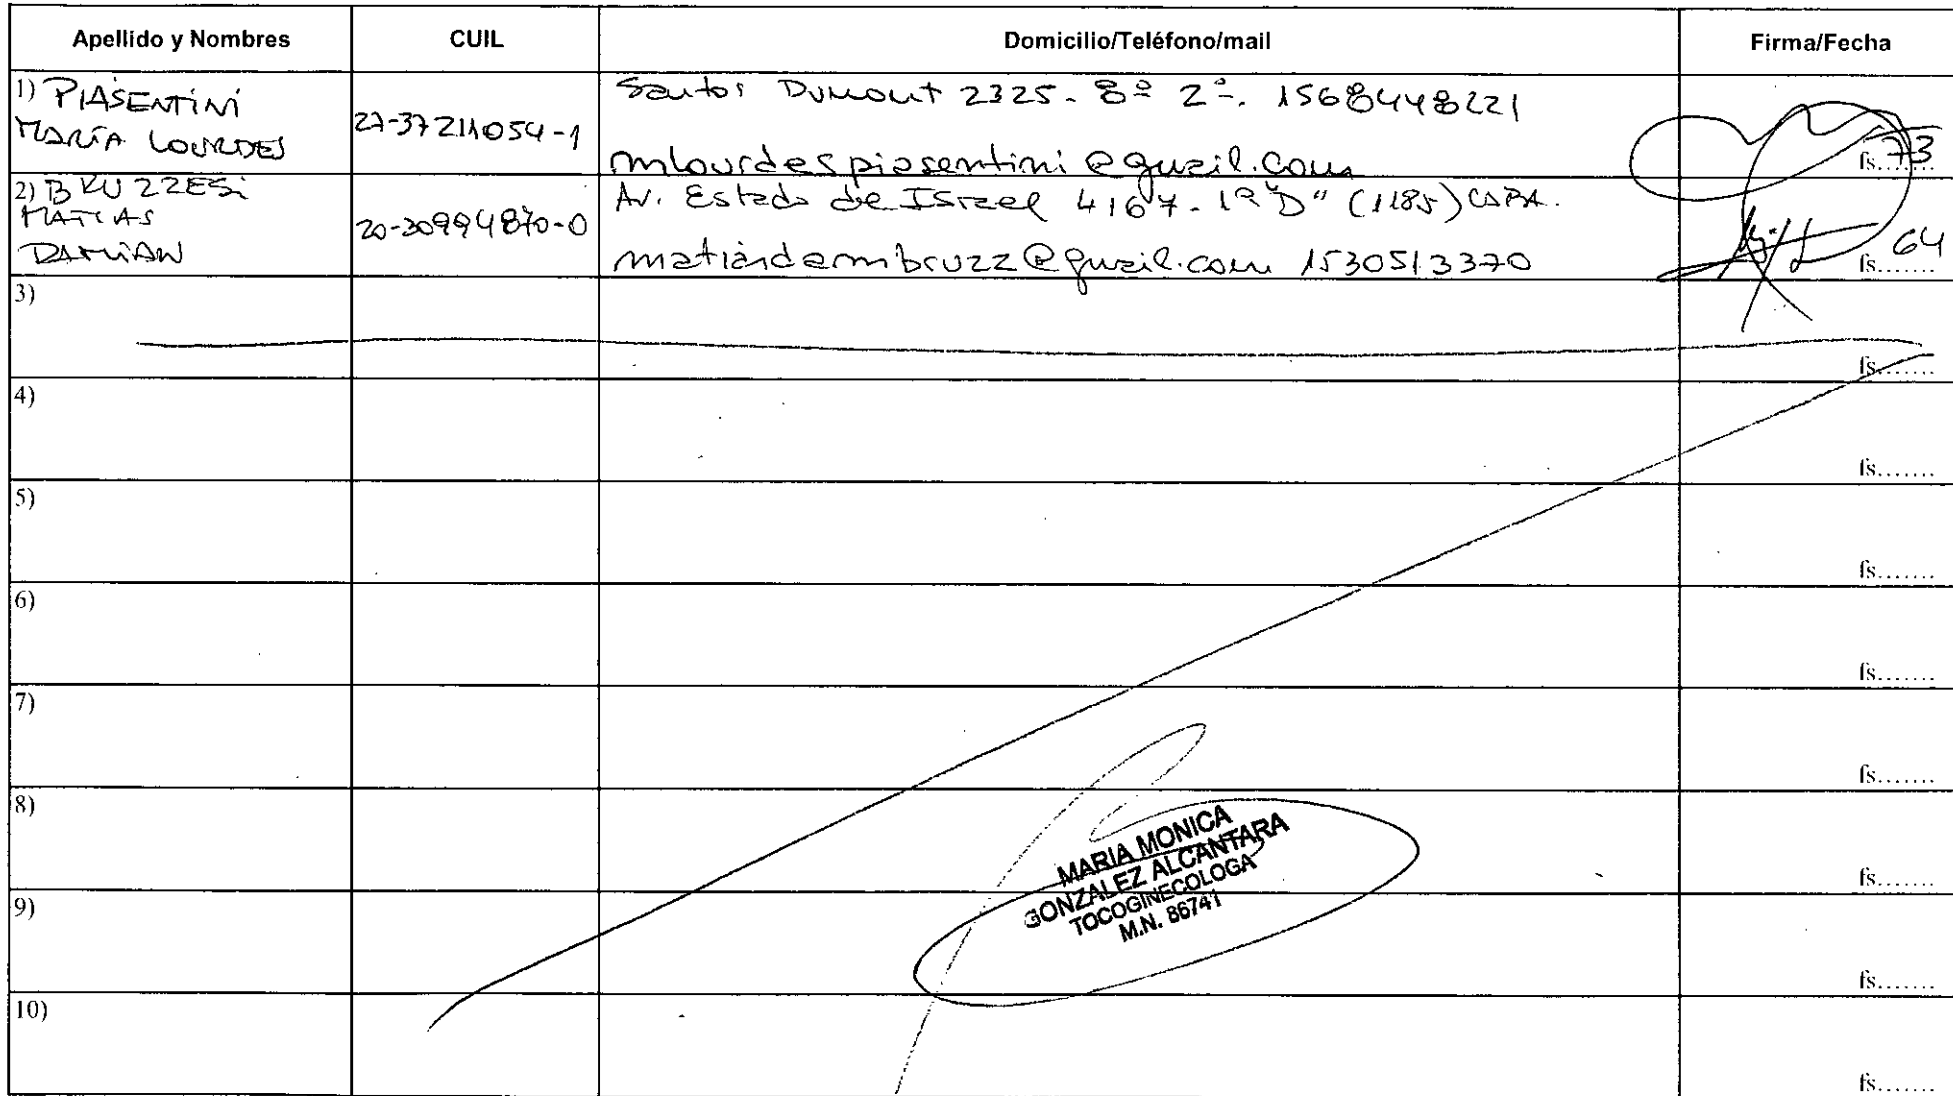 Apellido y Nombres CUIL Domicilio/Teléfono/mail Firma/Fecha
1) PIASENTINI
MARÍA LOURDES
27-37211054-1
Santos Dumont 2325. 8º 2º. 1568448221
mlourdespiasentini@gmail.com
fs. 73
2) BRUZZESI
MATIAS
DAMIÁN
20-30994870-0
Av. Estado de Israel 4167. 1º "D" (1185) CABA.
matiasdamibruzz@gmail.com 1530513370
fs....... 64
3)
fs.......
4)
fs.......
5)
fs.......
6)
fs.......
7)
fs.......
8)
fs.......
MARIA MONICA
GONZALEZ ALCANTARA
TOCOGINECOLOGA
M.N. 86741
9)
fs.......
10)
fs.......